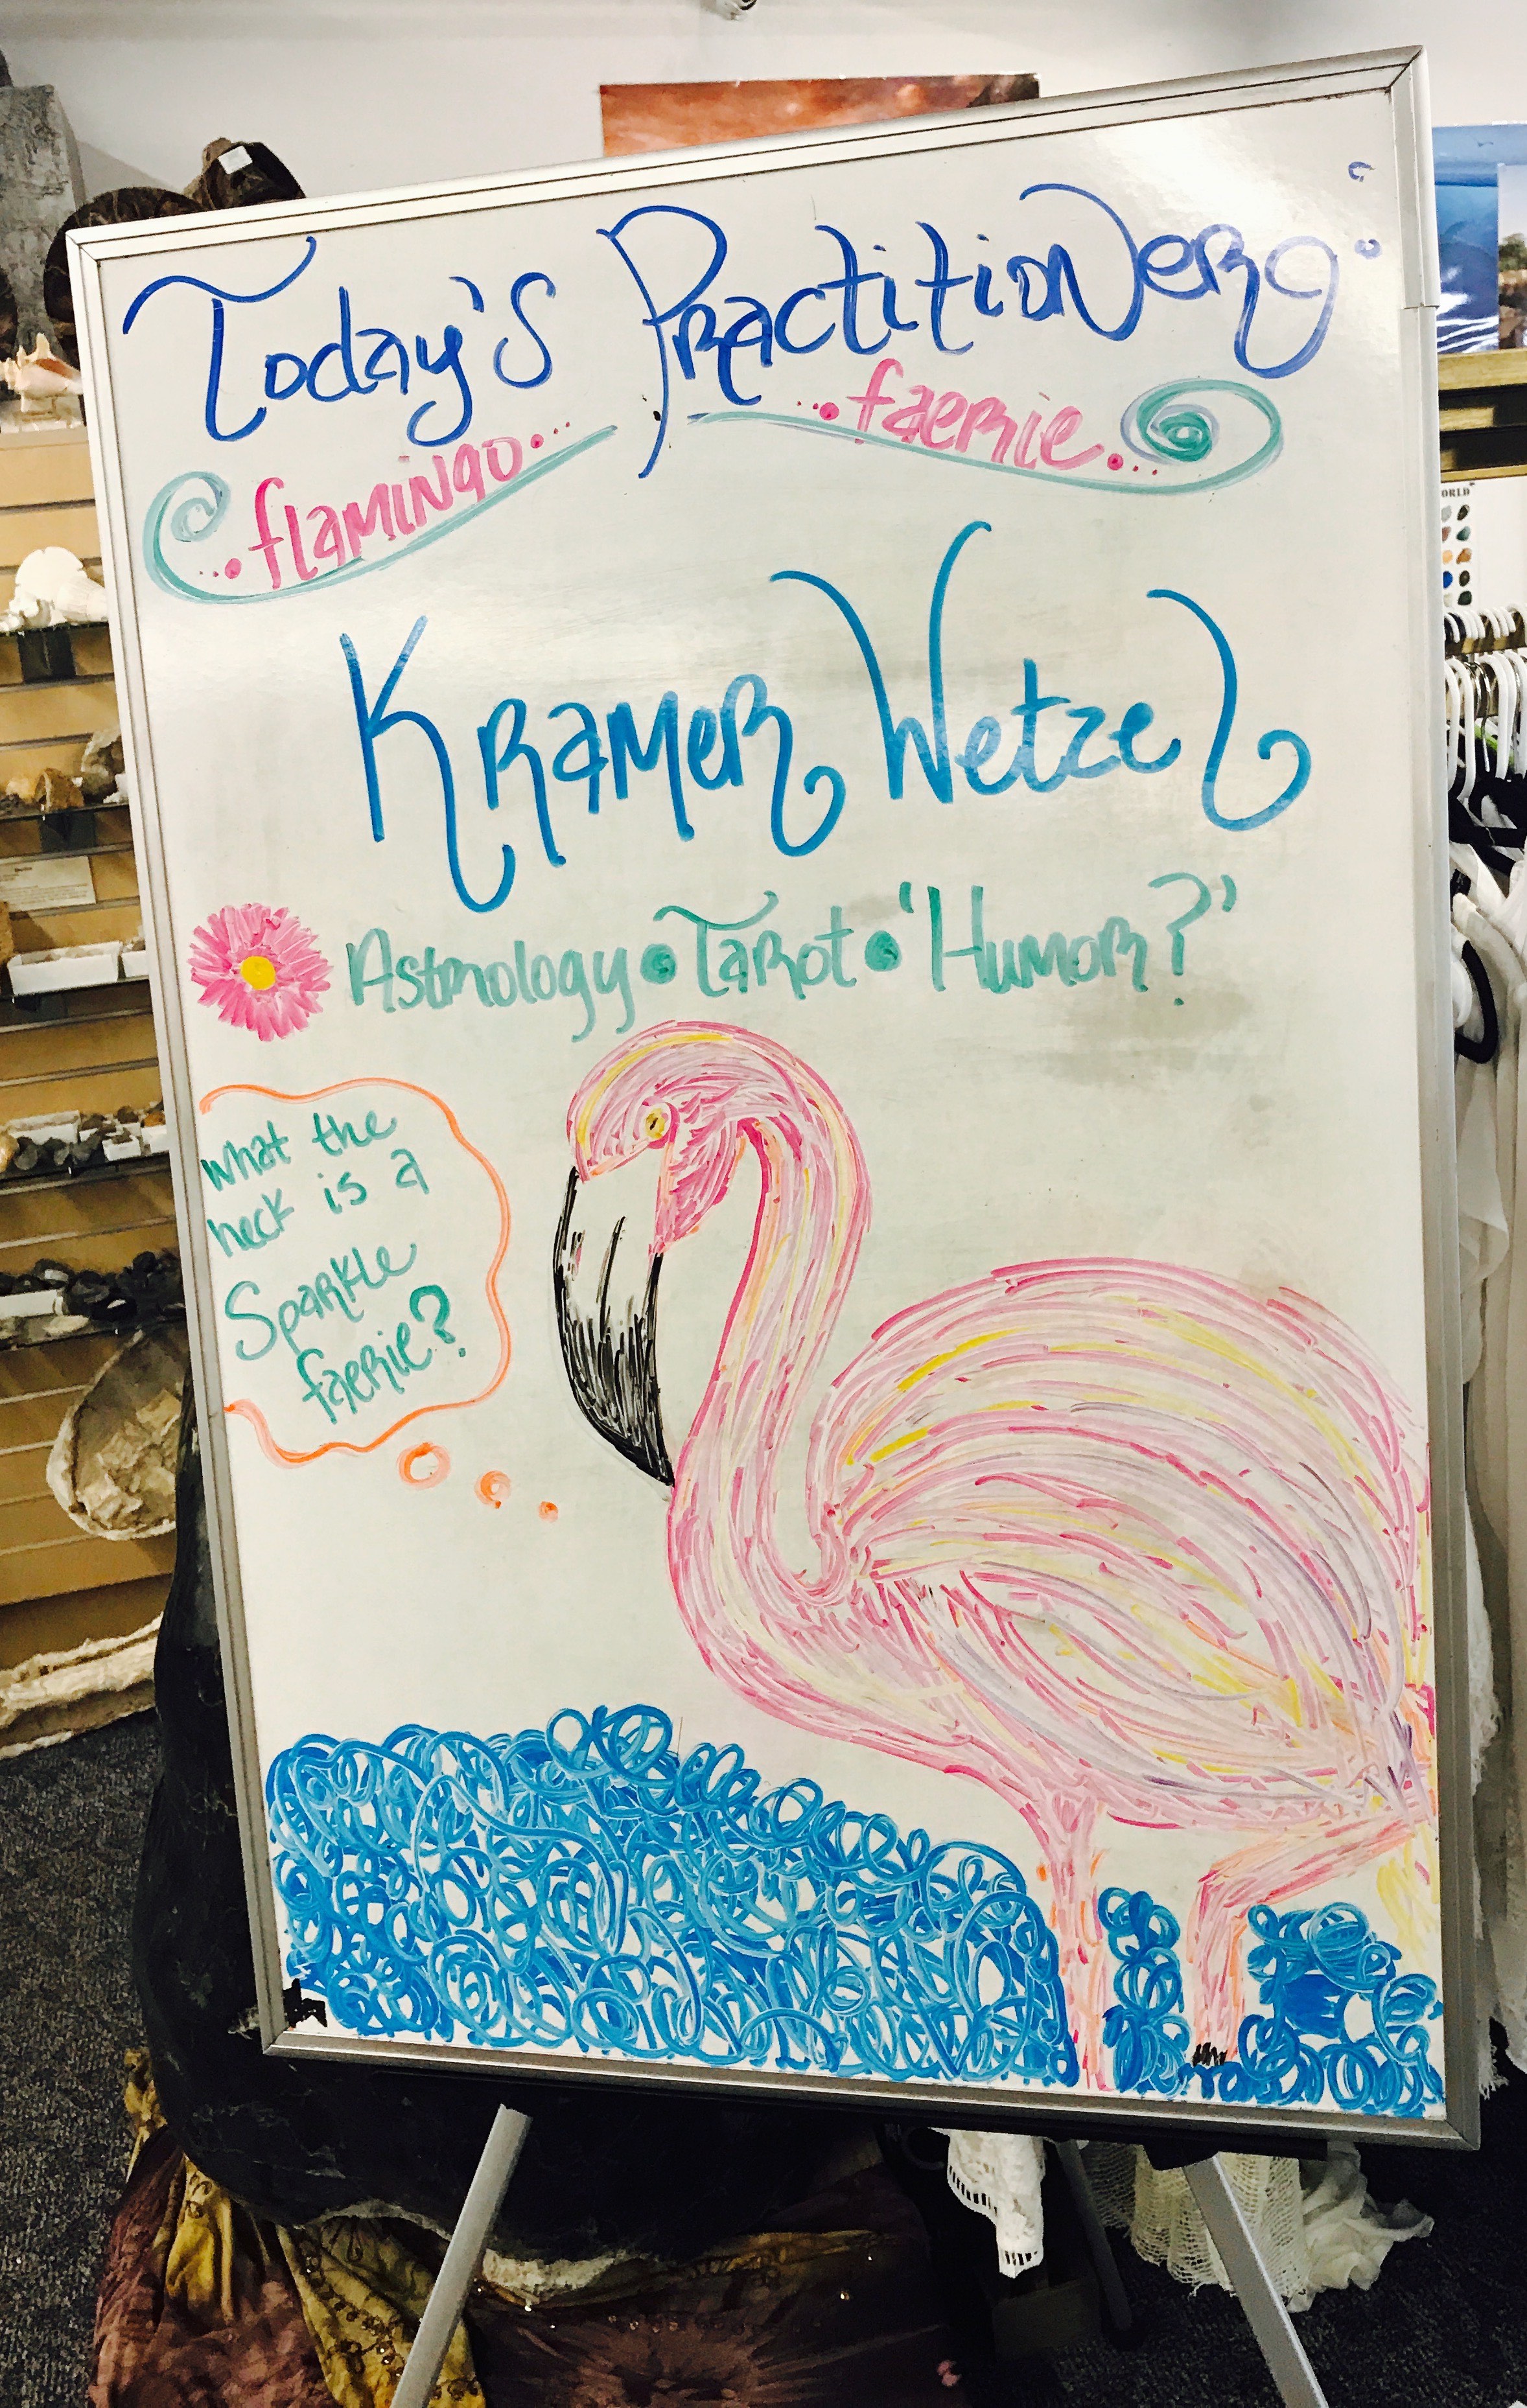 Today's Practitioners:
flamingo
faerie
Kramer Wetzel
Astrology • Tarot • 'Humor?'
what the
heck is a
Sparkle
faerie?
ORLD